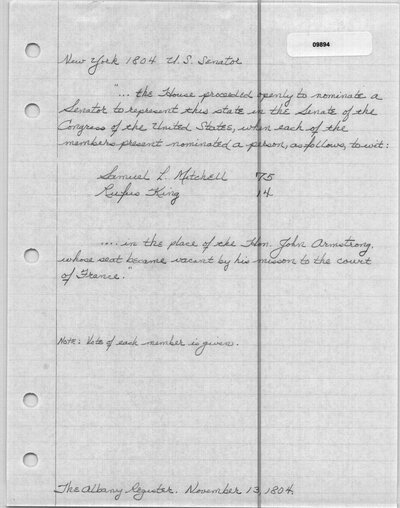 09894
New York 1804 U.S. Senator
"... the House proceeded openly to nominate a
Senator to represent this state in the Senate of the
Congress of the United States, when each of the
members present nominated a person, as follows, to wit:
Samuel L. Mitchell 75
Rufus King 14
.... in the place of the Hon. John Armstrong,
whose seat became vacant by his misson to the court
of France."
Note: Vote of each member is given.
The Albany Register. November 13, 1804.